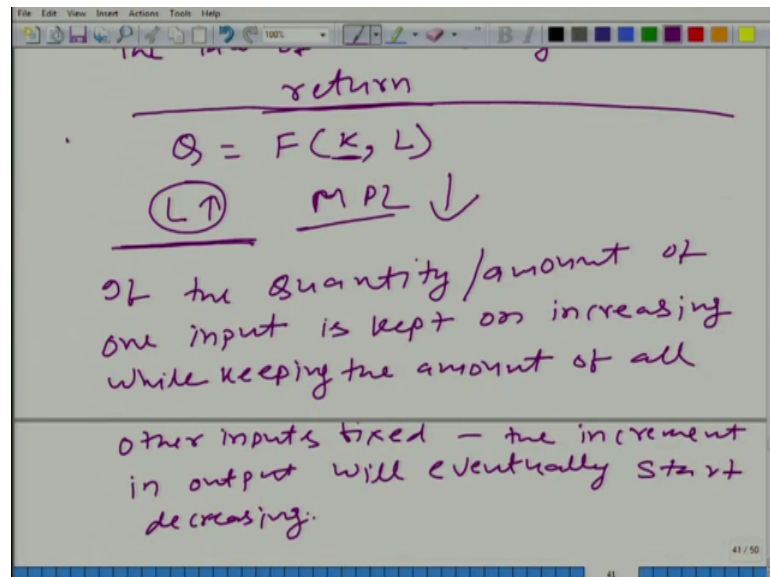 File Edit View Insert Actions Tools Help
100%
B I
the law of
return
Q = F(K, L)
L↑ MPL ↓
If the Quantity/amount of
one input is kept on increasing
while keeping the amount of all
other inputs fixed – the increment
in output will eventually start
decreasing.
41/50
41